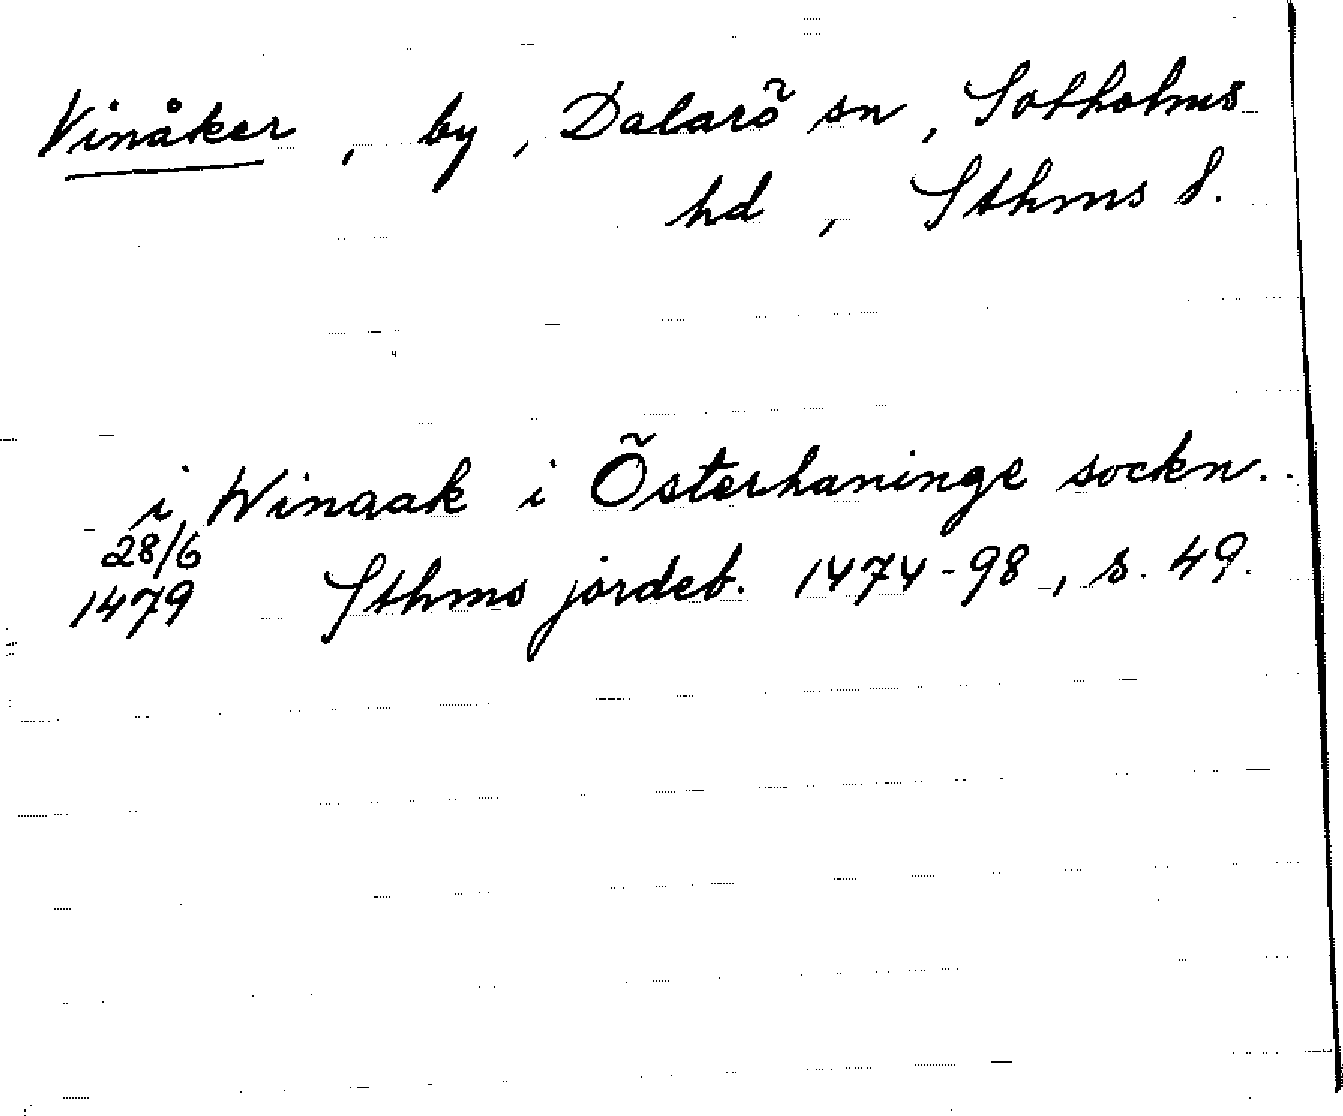 Vinåker, by, Dalarö sn, Sotholms
hd, Sthms l.
i Winaak i Österhaninge sockn..
28/6
1479 Sthms jordeb. 1474-98, s. 49.